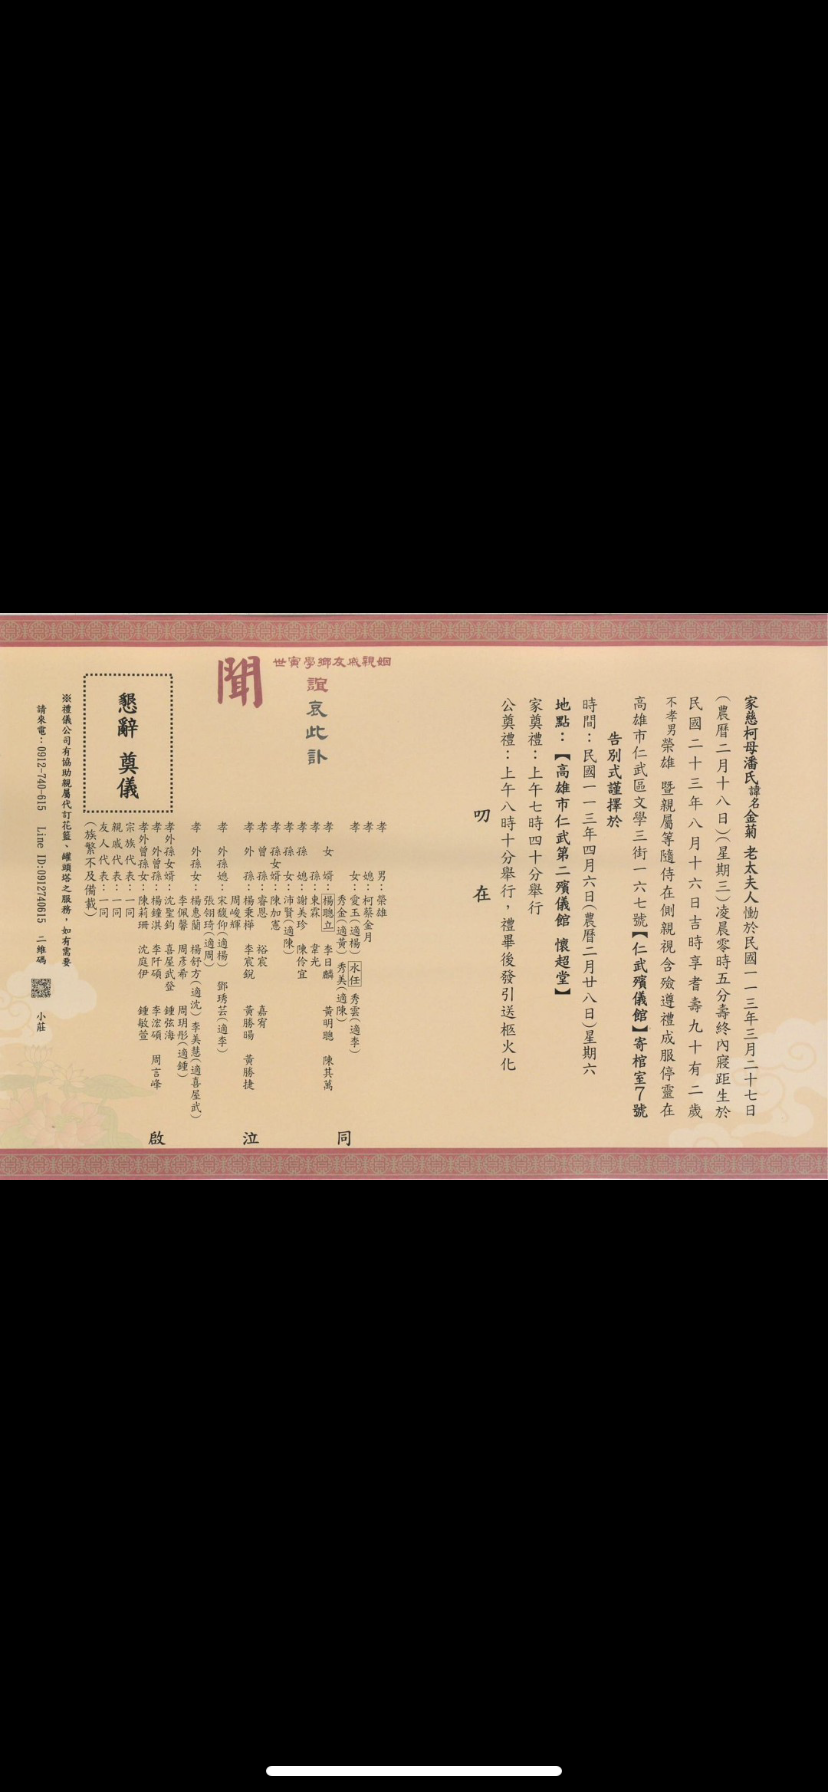 家慈柯母潘氏諱名金菊 老太夫人慟於民國一一三年三月二十七日
(農曆二月十八日)(星期三)凌晨零時五分壽終內寢距生於
民國二十三年八月十六日吉時享耆壽九十有二歲
不孝男榮雄 暨親屬等隨侍在側親視含殮遵禮成服停靈在
高雄市仁武區文學三街一六七號【仁武殯儀館】寄棺室7號
告別式謹擇於
時間：民國一一三年四月六日(農曆二月廿八日)星期六
地點：【高雄市仁武第二殯儀館 懷超堂】
家奠禮：上午七時四十分舉行
公奠禮：上午八時十分舉行，禮畢後發引送柩火化
叨 在
姻親戚友鄉學寅世
誼
哀此訃
聞
孝 男：榮雄
孝 媳：柯蔡金月
孝 女：愛玉(適楊) 永任 秀雲(適李)
秀金(適黃) 秀美(適陳)
孝 女 婿：楊聰立 李日麟 黃明聰 陳其萬
孝 孫：東霖 韋光
孝 孫 媳：謝美珍 陳伶宜
孝 孫 女：沛賢(適陳)
孝孫女婿：陳加憲
孝 曾 孫：睿恩 裕宸 嘉宥
孝 外 孫：楊秉樺 李宸銳 黃勝暘 黃勝捷
周峻輝
孝 外孫媳：宋馥仰(適楊) 鄧琇芸(適李)
張翎琦(適周)
孝 外孫女：楊惠蘭 楊舒方(適沈) 李美慧(適喜屋武)
李佩馨 周彥希 周玥彤(適鍾)
孝外孫女婿：沈聖鈞 喜屋武登 鍾弦海
孝 外曾孫：楊鐘淇 李阡碩 李浤碩 周言峰
孝外曾孫女：陳莉珊 沈庭伊 鍾敏萱
宗族代表：一同
親戚代表：一同
友人代表：一同
(族繁不及備載)
同
泣
啟
懇辭 奠儀
※禮儀公司有協助親屬代訂花籃、罐頭塔之服務，如有需要
請來電：0912-740-615 Line ID:0912740615 二維碼 小莊